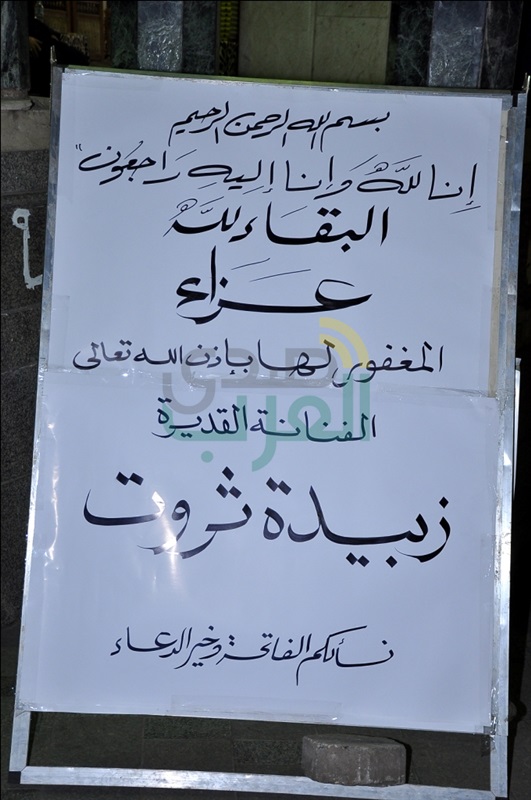 بسم الله الرحمن الرحيم
إنا لله وإنا إليه راجعون"
البقاء لله
عزاء
المغفور لها بإذن الله تعالى
الفنانة القديرة
زبيدة ثروت
نسألكم الفاتحة وخير الدعاء
صدى
العرب